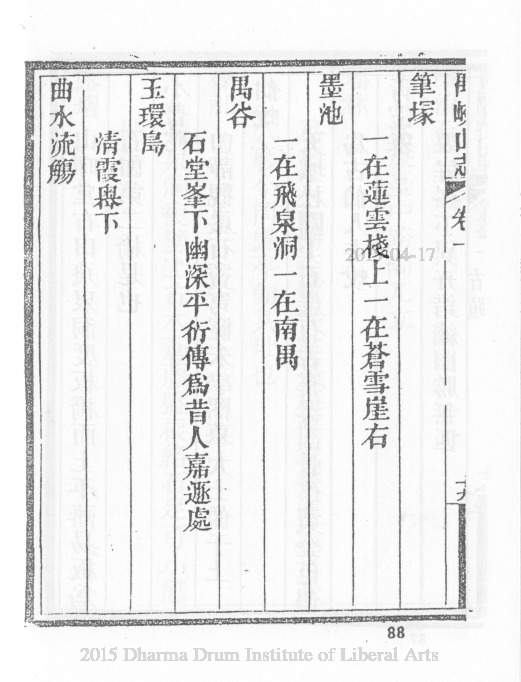 禺峽山志 卷一
筆塚
一在蓮雲棧上一在蒼雪崖右
墨池
一在飛泉洞一在南禺
禺谷
石堂峯下幽深平衍傳爲昔人嘉遯處
玉環島
清霞礜下
曲水流觴
88
2015-04-17
2015 Dharma Drum Institute of Liberal Arts